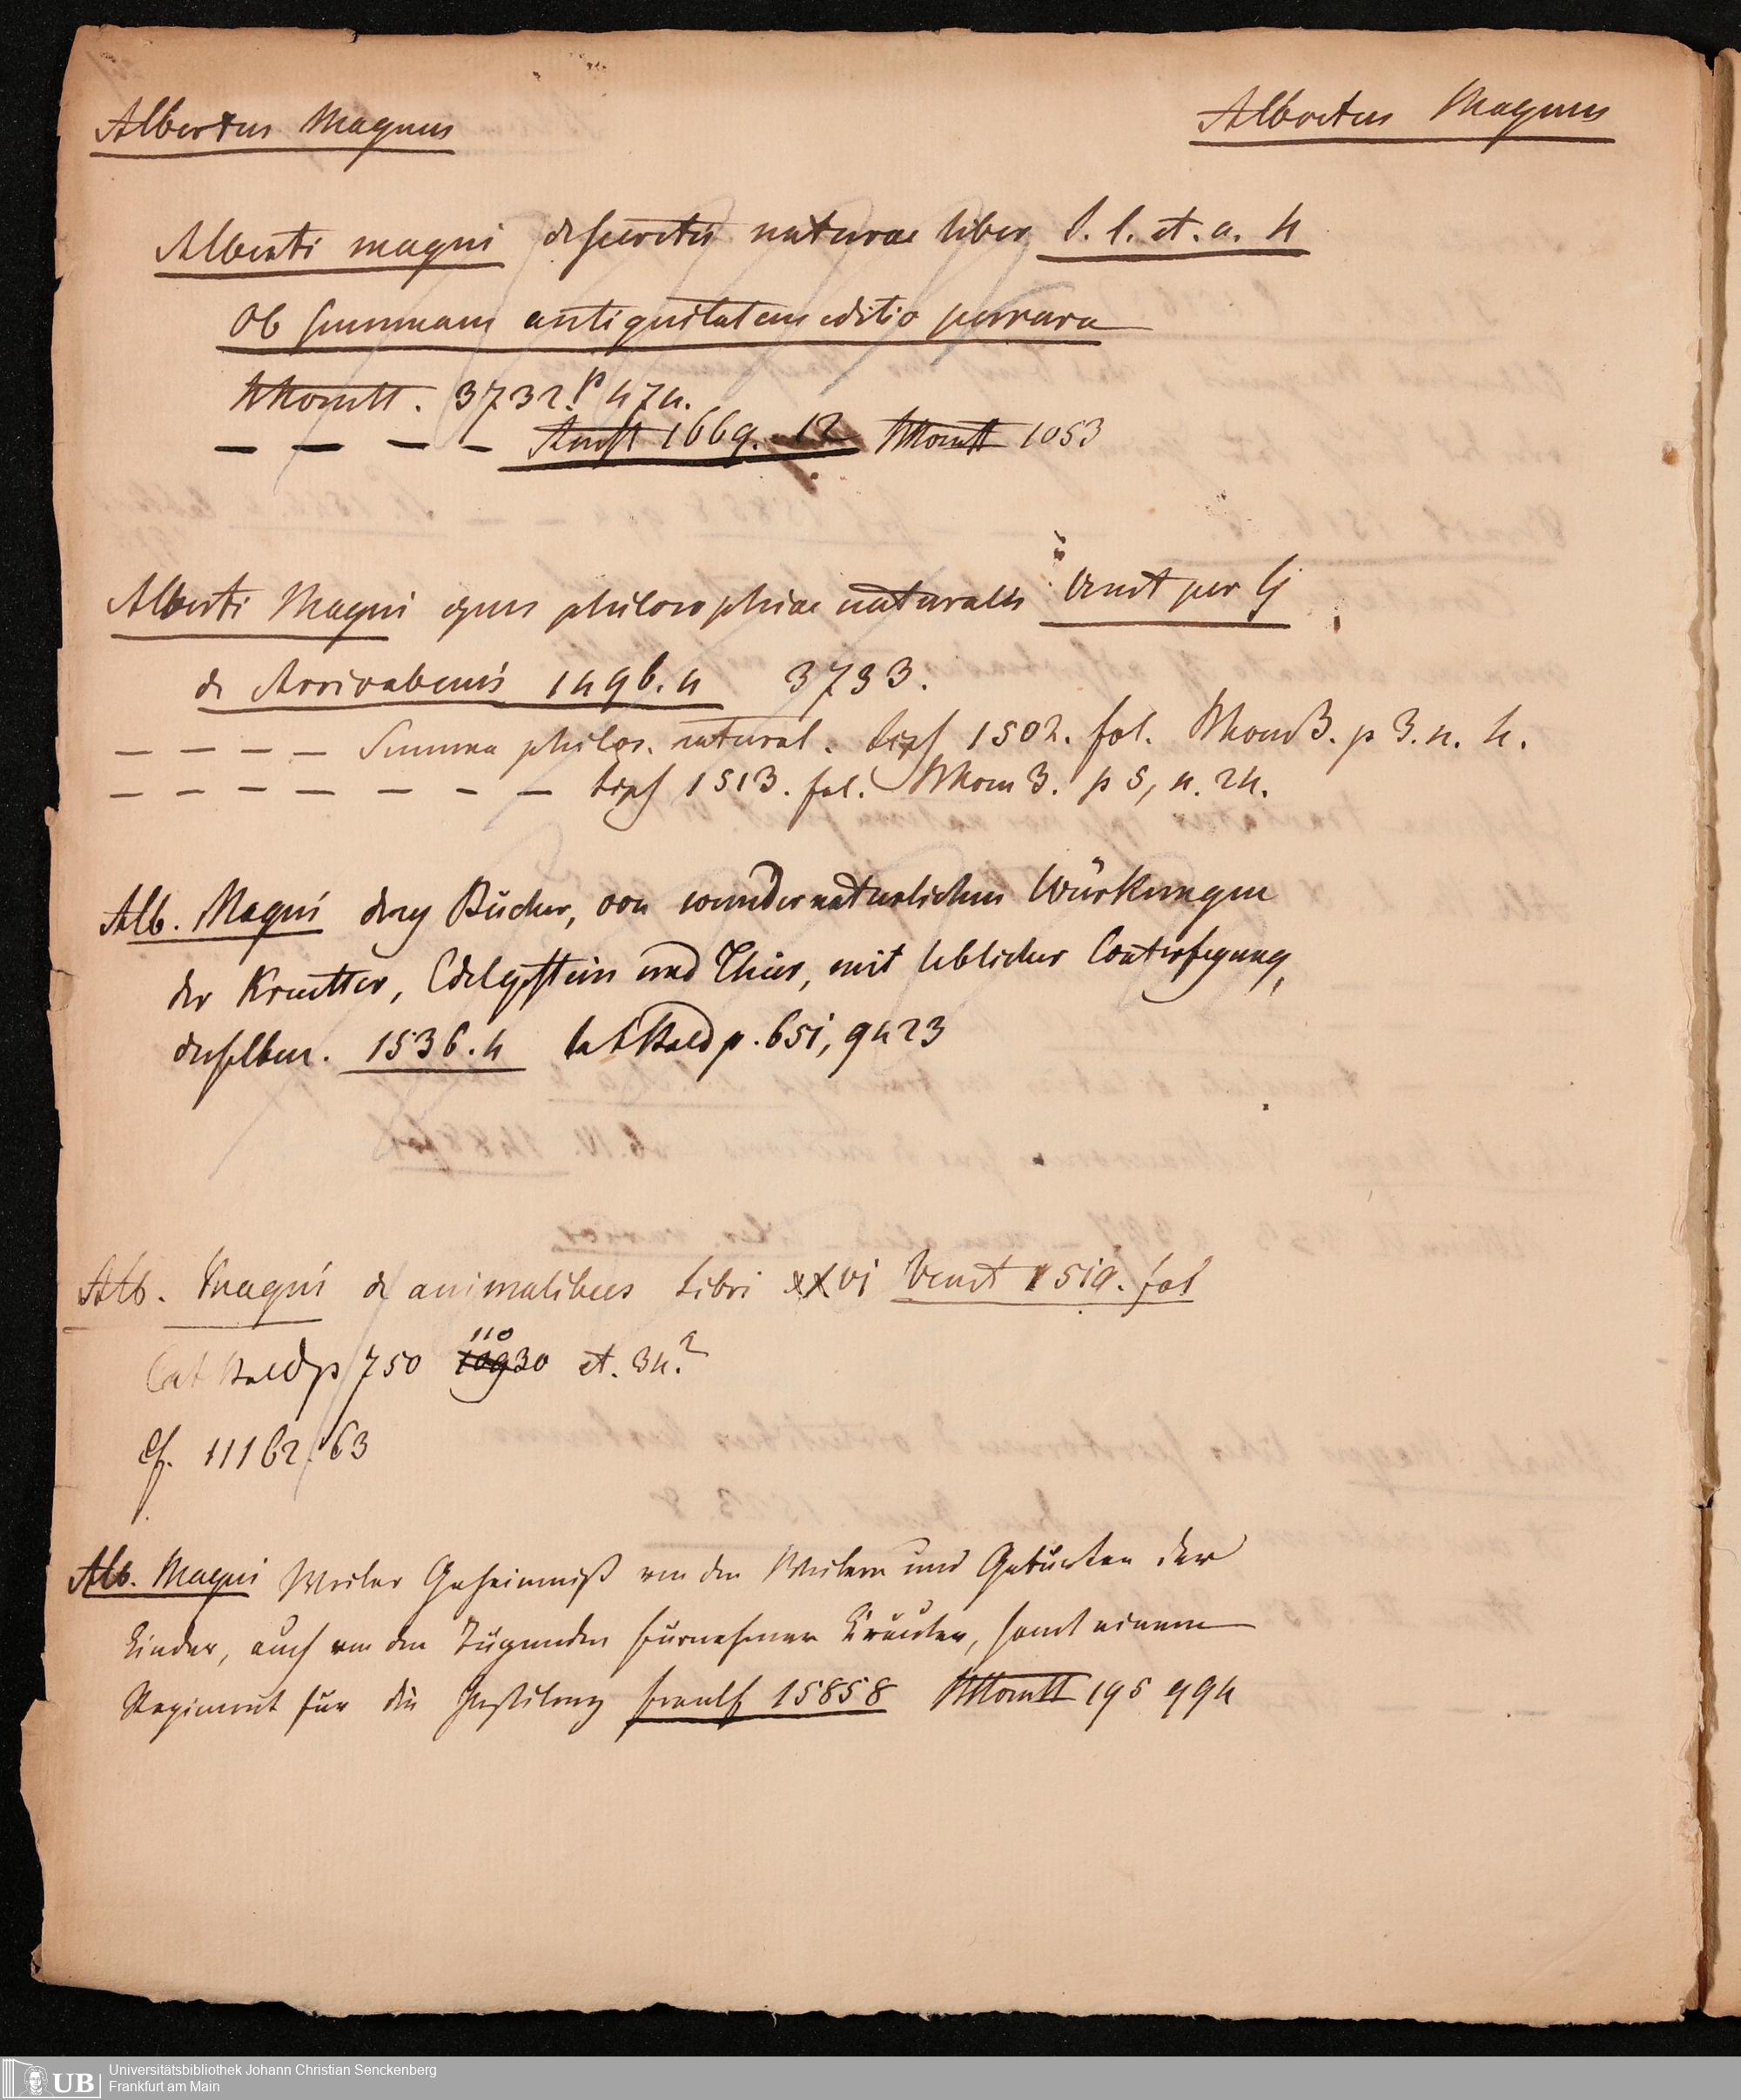 Albertus Magnus
Albertus Magnus
Alberti magni de secretis naturae liber S. l. et. a. 4
Ob summam antiquitatem editio perrara
3732. p 474.
– – – – Amst 1669. 12 1053
Alberti Magni opus philosophiae naturalis Venet per G
de Arrivabenis 1496. 4 3733.
– – – – Summa philos. natural. Lips 1502. fol. p 3. n. 4.
– – – – – – – Lips 1513. fol. p 5, n. 24.
Alb. Magni drey Bücher, von wundernaturlichen Würkungen
der Kreutter, Edelgestein und Thier, mit leblicher Conterfegung,
derselben. 1536. 4 p. 651, 9423
Alb. Magni de animalibus Libri XXVI Venet 1519. fol
Cat p 750 110 30 et. 34.
Cf. 11162. 63
Alb. Magni Weiber Geheimniß von den Weibern und Geburten der
Kinder, auch von den Tugenden fürnehmer Kräuter, samt einem
Regiment für die Pestilenz Frankf 1585 8 195 994
Universitätsbibliothek Johann Christian Senckenberg
UB Frankfurt am Main